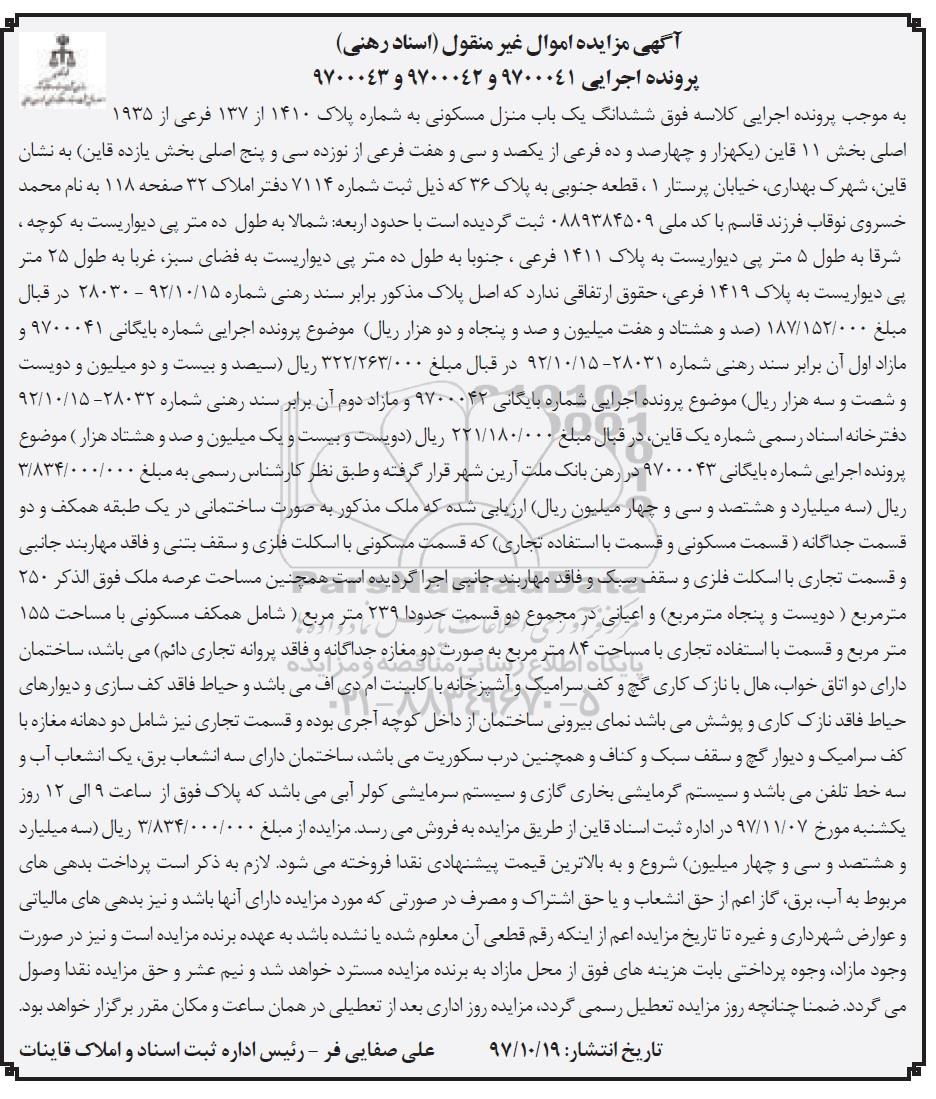 آگهی مزایده اموال غیر منقول (اسناد رهنی)
پرونده اجرایی ۹۷۰۰۰۴۱ و ۹۷۰۰۰۴۲ و ۹۷۰۰۰۴۳
به موجب پرونده اجرایی کلاسه فوق ششدانگ یک باب منزل مسکونی به شماره پلاک ۱۴۱۰ از ۱۳۷ فرعی از ۱۹۳۵
اصلی بخش ۱۱ قاین (یکهزار و چهارصد و ده فرعی از یکصد و سی و هفت فرعی از نوزده سی و پنج اصلی بخش یازده قاین) به نشان
قاین، شهرک بهداری، خیابان پرستار ۱ ، قطعه جنوبی به پلاک ۳۶ که ذیل ثبت شماره ۷۱۱۴ دفتر املاک ۳۲ صفحه ۱۱۸ به نام محمد
خسروی نوقاب فرزند قاسم با کد ملی ۰۸۸۹۳۸۴۵۰۹ ثبت گردیده است با حدود اربعه: شمالا به طول ده متر پی دیواریست به کوچه ،
شرقا به طول ۵ متر پی دیواریست به پلاک ۱۴۱۱ فرعی ، جنوبا به طول ده متر پی دیواریست به فضای سبز، غربا به طول ۲۵ متر
پی دیواریست به پلاک ۱۴۱۹ فرعی، حقوق ارتفاقی ندارد که اصل پلاک مذکور برابر سند رهنی شماره ۹۲/۱۰/۱۵ - ۲۸۰۳۰ در قبال
مبلغ ۱۸۷/۱۵۲/۰۰۰ (صد و هشتاد و هفت میلیون و صد و پنجاه و دو هزار ریال) موضوع پرونده اجرایی شماره بایگانی ۹۷۰۰۰۴۱ و
مازاد اول آن برابر سند رهنی شماره ۲۸۰۳۱- ۹۲/۱۰/۱۵ در قبال مبلغ ۳۲۲/۲۶۳/۰۰۰ ریال (سیصد و بیست و دو میلیون و دویست
و شصت و سه هزار ریال) موضوع پرونده اجرایی شماره بایگانی ۹۷۰۰۰۴۲ و مازاد دوم آن برابر سند رهنی شماره ۲۸۰۳۲- ۹۲/۱۰/۱۵
دفترخانه اسناد رسمی شماره یک قاین، در قبال مبلغ ۲۲۱/۱۸۰/۰۰۰ ریال (دویست و بیست و یک میلیون و صد و هشتاد هزار ) موضوع
پرونده اجرایی شماره بایگانی ۹۷۰۰۰۴۳ در رهن بانک ملت آرین شهر قرار گرفته و طبق نظر کارشناس رسمی به مبلغ ۳/۸۳۴/۰۰۰/۰۰۰
ریال (سه میلیارد و هشتصد و سی و چهار میلیون ریال) ارزیابی شده که ملک مذکور به صورت ساختمانی در یک طبقه همکف و دو
قسمت جداگانه ( قسمت مسکونی و قسمت با استفاده تجاری) که قسمت مسکونی با اسکلت فلزی و سقف بتنی و فاقد مهاربند جانبی
و قسمت تجاری با اسکلت فلزی و سقف سبک و فاقد مهاربند جانبی اجرا گردیده است همچنین مساحت عرصه ملک فوق الذکر ۲۵۰
مترمربع ( دویست و پنجاه مترمربع) و اعیانی در مجموع دو قسمت حدودا ۲۳۹ متر مربع ( شامل همکف مسکونی با مساحت ۱۵۵
متر مربع و قسمت با استفاده تجاری با مساحت ۸۴ متر مربع به صورت دو مغازه جداگانه و فاقد پروانه تجاری دائم) می باشد، ساختمان
دارای دو اتاق خواب، هال با نازک کاری گچ و کف سرامیک و آشپزخانه با کابینت ام دی اف می باشد و حیاط فاقد کف سازی و دیوارهای
حیاط فاقد نازک کاری و پوشش می باشد نمای بیرونی ساختمان از داخل کوچه آجری بوده و قسمت تجاری نیز شامل دو دهانه مغازه با
کف سرامیک و دیوار گچ و سقف سبک و کناف و همچنین درب سکوریت می باشد، ساختمان دارای سه انشعاب برق، یک انشعاب آب و
سه خط تلفن می باشد و سیستم گرمایشی بخاری گازی و سیستم سرمایشی کولر آبی می باشد که پلاک فوق از ساعت ۹ الی ۱۲ روز
یکشنبه مورخ ۹۷/۱۱/۰۷ در اداره ثبت اسناد قاین از طریق مزایده به فروش می رسد. مزایده از مبلغ ۳/۸۳۴/۰۰۰/۰۰۰ ریال (سه میلیارد
و هشتصد و سی و چهار میلیون) شروع و به بالاترین قیمت پیشنهادی نقدا فروخته می شود. لازم به ذکر است پرداخت بدهی های
مربوط به آب، برق، گاز اعم از حق انشعاب و یا حق اشتراک و مصرف در صورتی که مورد مزایده دارای آنها باشد و نیز بدهی های مالیاتی
و عوارض شهرداری و غیره تا تاریخ مزایده اعم از اینکه رقم قطعی آن معلوم شده یا نشده باشد به عهده برنده مزایده است و نیز در صورت
وجود مازاد، وجوه پرداختی بابت هزینه های فوق از محل مازاد به برنده مزایده مسترد خواهد شد و نیم عشر و حق مزایده نقدا وصول
می گردد. ضمنا چنانچه روز مزایده تعطیل رسمی گردد، مزایده روز اداری بعد از تعطیلی در همان ساعت و مکان مقرر برگزار خواهد بود.
تاریخ انتشار: ۹۷/۱۰/۱۹ علی صفایی فر - رئیس اداره ثبت اسناد و املاک قاینات
ParsNamadData
مرکز فرآوری اطلاعات پارس نماد داده ها
پایگاه اطلاع رسانی مناقصه و مزایده
۰۲۱-۸۸۳۴۹۶۷۰-۵